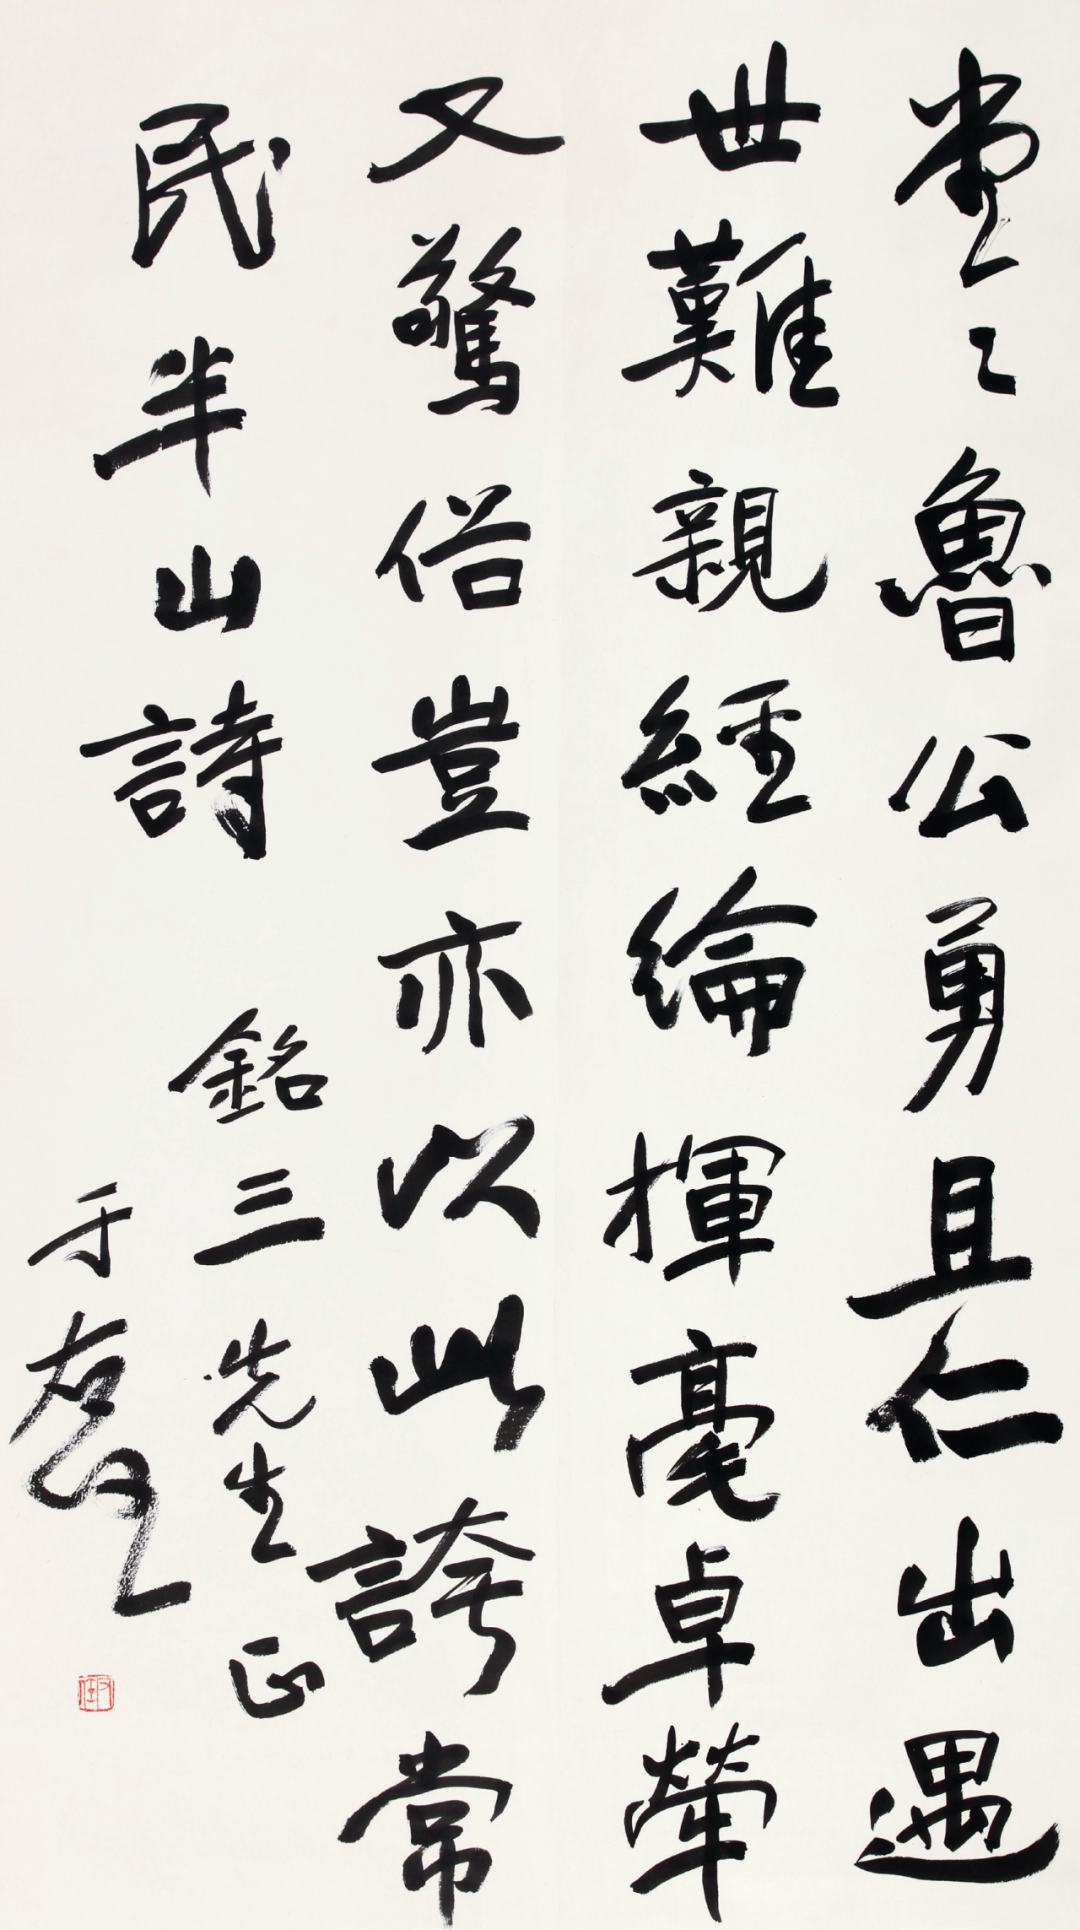 堂々魯公勇且仁出遇
世難親經綸揮毫卓犖
又驚俗豈亦以此誇常
民半山詩
銘三先生正
于右任
右任